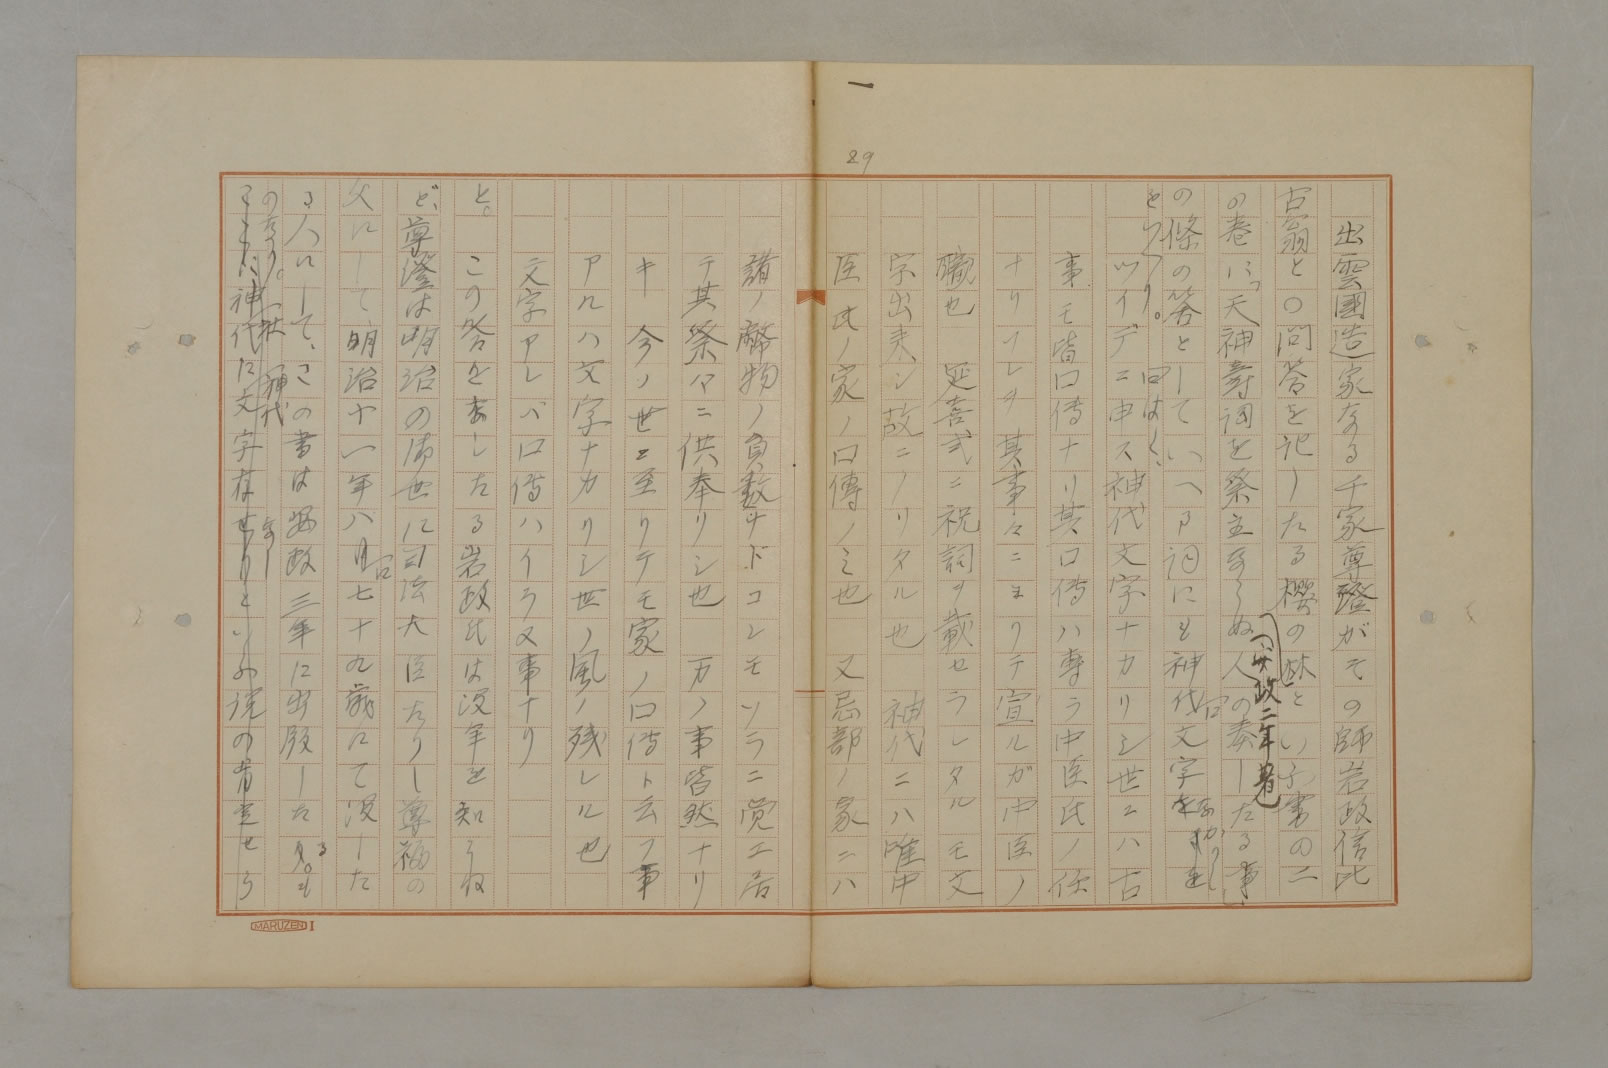 一
29
出雲國造家なる千家尊澄がその師岩政信比
古翁との問答を記したる櫻の林といふ書の二
(安政二年著)
の巻に、天神壽詞を祭主ならぬ人の奏したる事
の條の答としていへる詞にも神代文字を
をいへり。曰はく、
ツイデニ申ス神代文字ナカリシ世ニハ古
事モ皆口傳ナリ其口傳ハ專ラ中臣氏ノ任
ナリソレヲ其事々ニヨリテ宣ルガ中臣ノ
職也 延喜式ニ祝詞ヲ載セラレタルモ文
字出来シ故ニノリタル也 神代ニハ唯中
臣氏ノ家ノ口傳ノミ也 又忌部ノ家ニハ
諸ノ幣物ノ員数ナドコレモソラニ覚エ居
テ其祭々ニ供奉リシ也 万ノ事皆然ナリ
キ 今ノ世ニ至リテモ家ノ口傳ト云フ事
アルハ文字ナカリシ世ノ風ノ残レル也
文字アレバ口傳ハイラヌ事ナリ
と。
この答をあしたる岩政氏は没年を知らね
ど、尊澄は明治の御世に司法大臣たりし尊福の
父にして明治十一年八月七十九歳にて没した
る人にして、この書は安政三年に出版したるも
のなり。
ここに神代に文字存せりといふ説の肯定せら
MARUZEN I